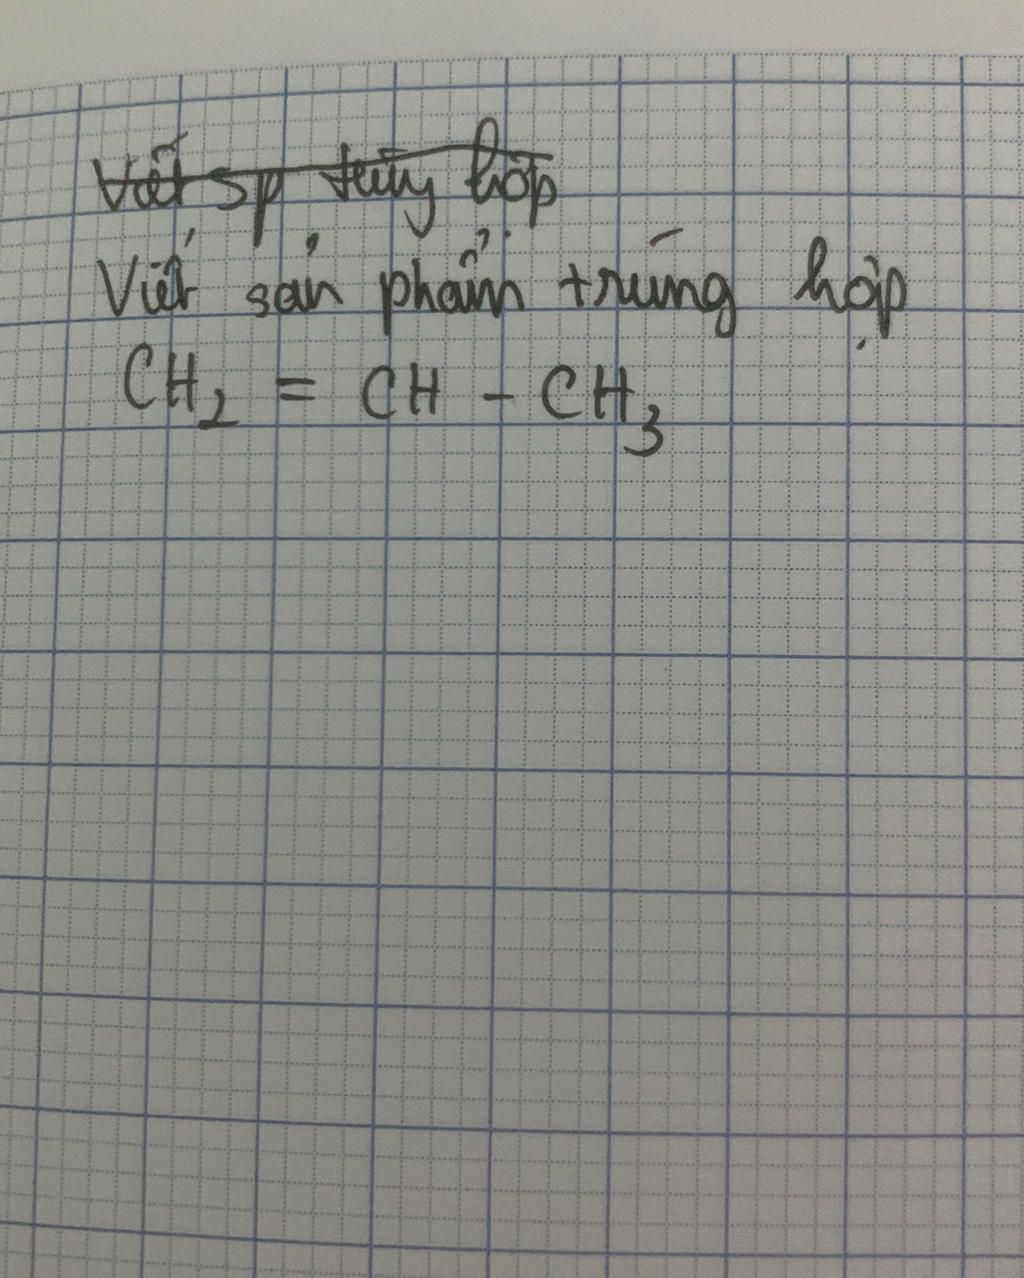 Viết sp trùng hợp
Viết sản phẩm trùng hợp
CH₂ = CH - CH₃